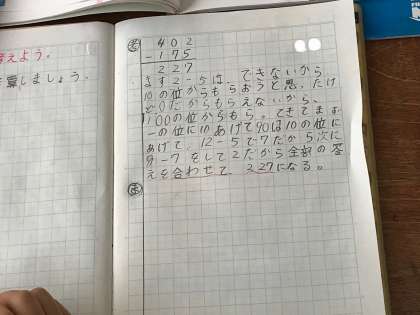 考えよう。
算しましょう。
そ
402
-175
227
まず2-5は、できないから
10の位からもらおうと思ったけ
ど0だからもらえないから、
100の位からもら。てきてまず
一の位に10あげて90は10の位に
あげて、12-5で7だから次に
9-7をして2だから全部の答
えを合わせて 227になる。
ま